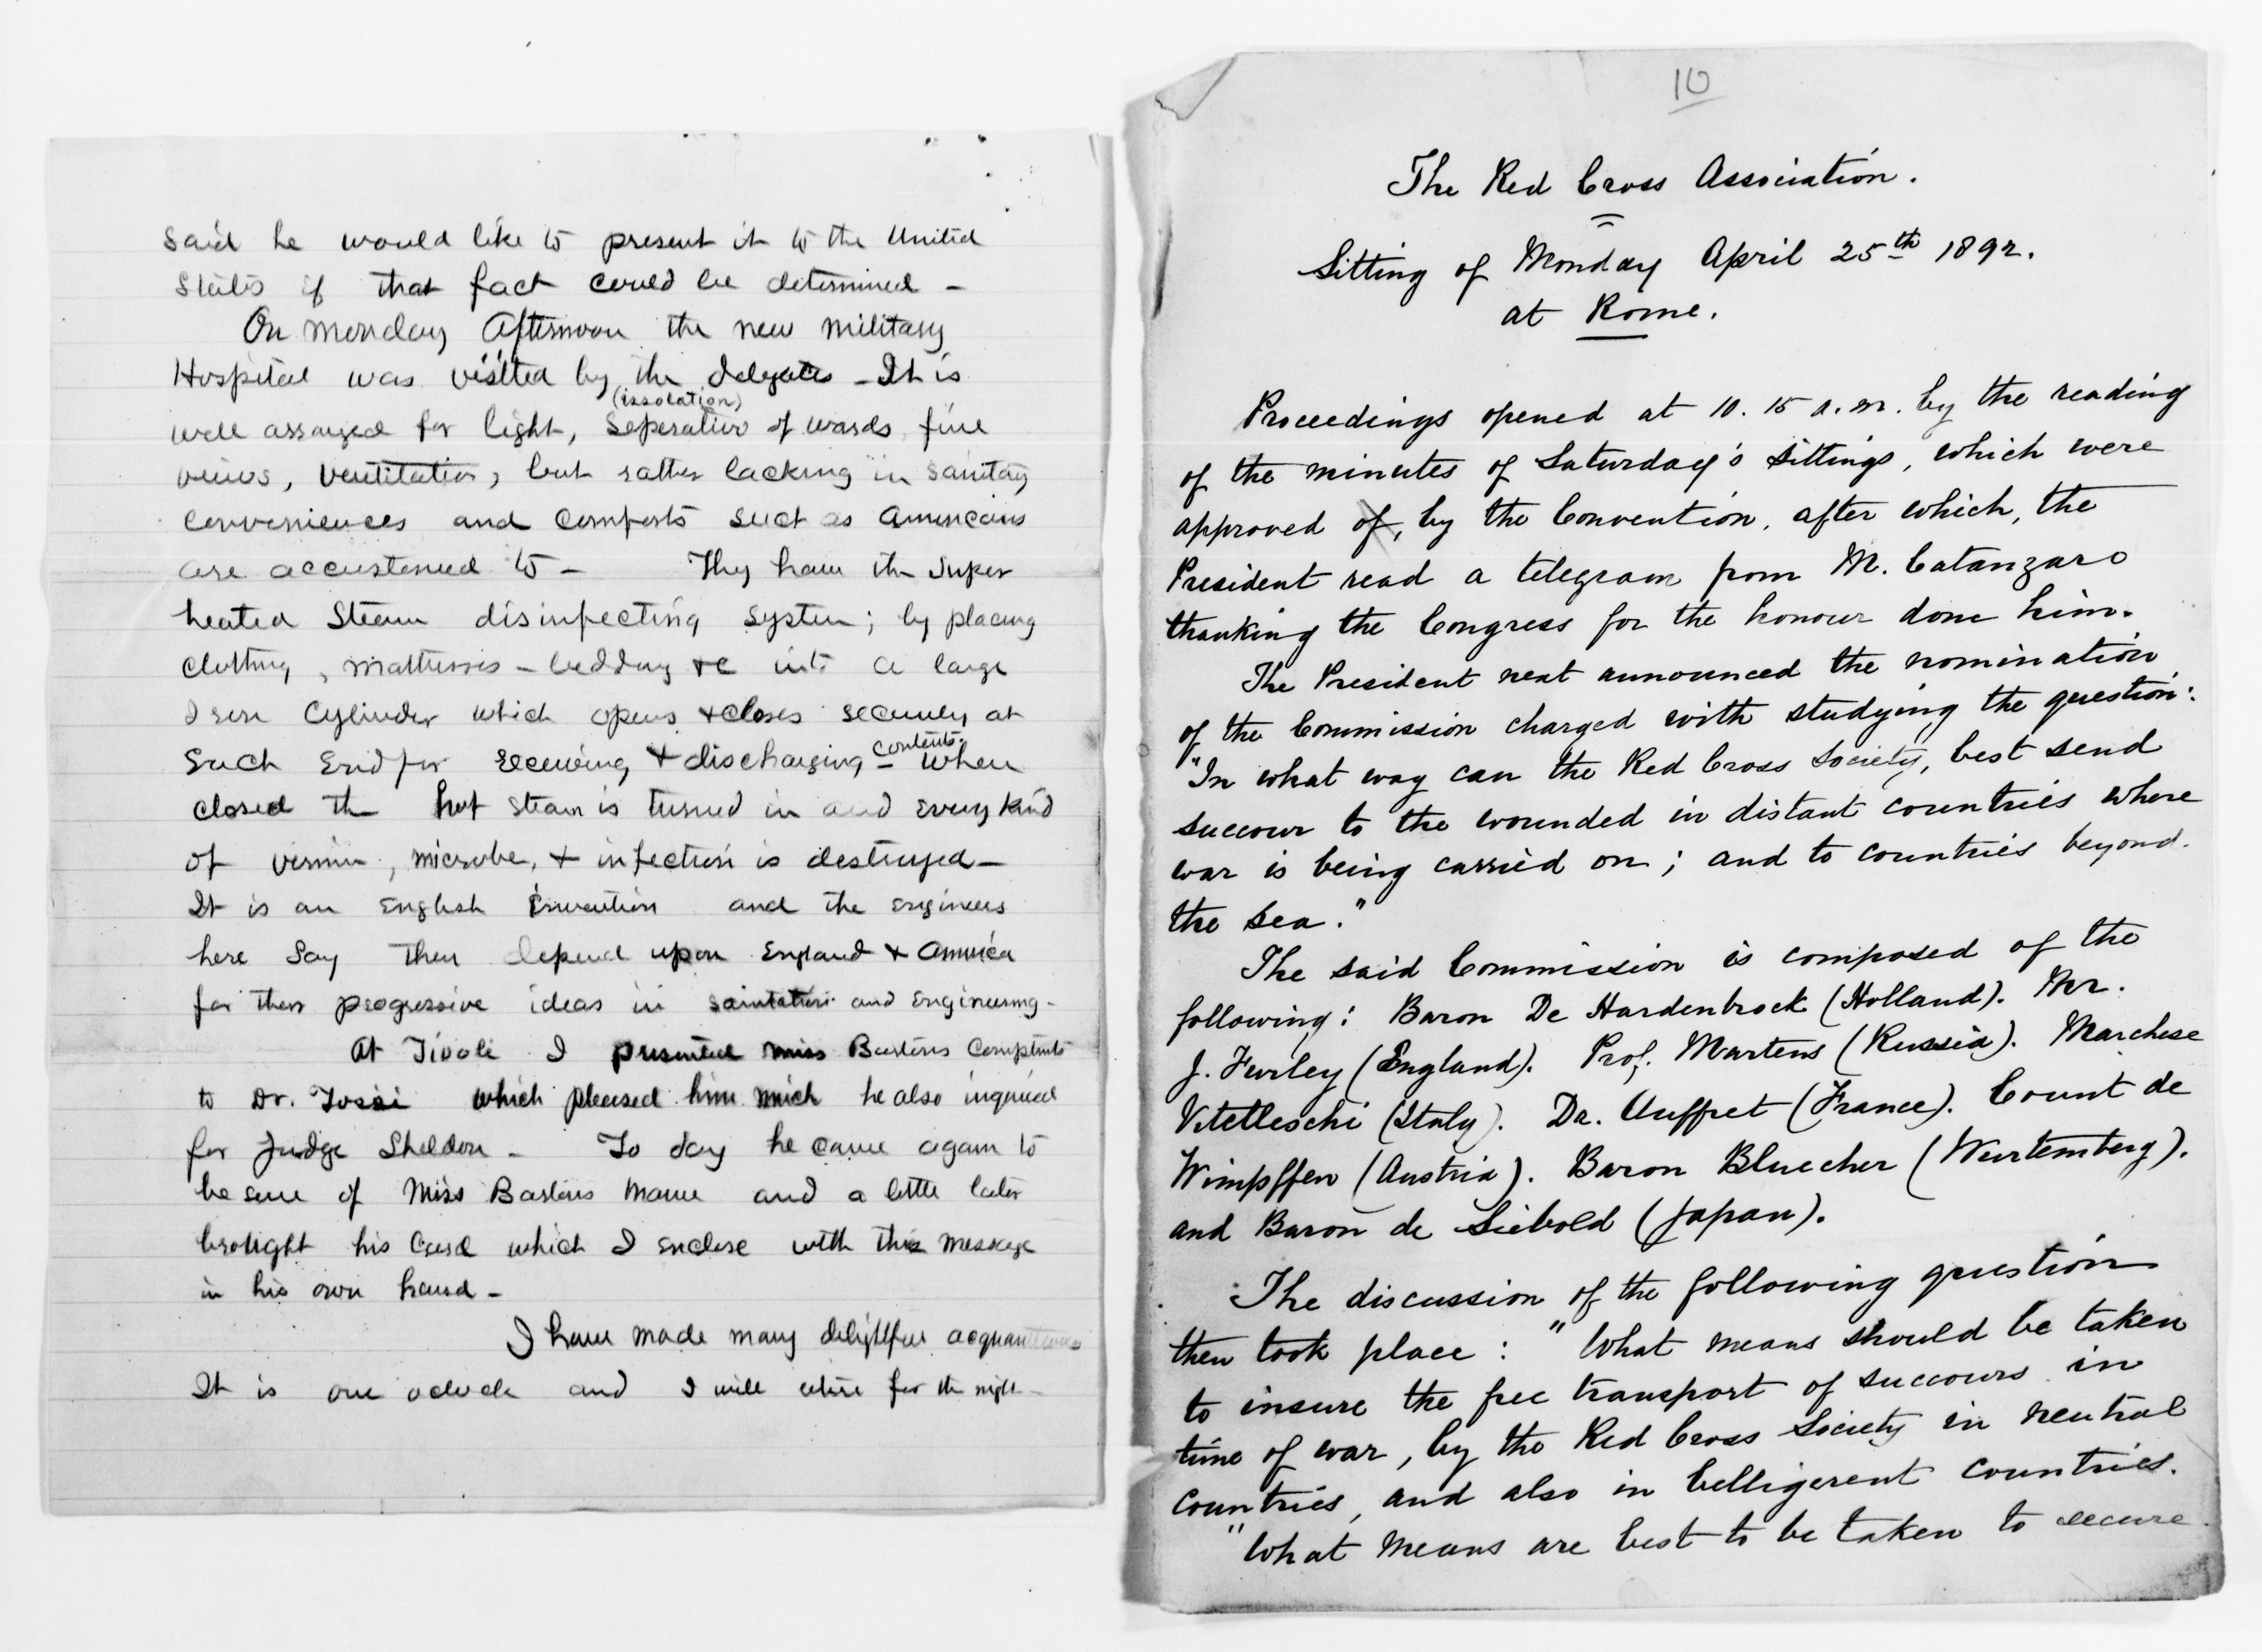 said he would like to present it to the United
States if that fact could be determined -
On Monday Afternoon the new military
Hospital was visited by the delegates - It is
(issolation)
well arranged for light, Seperation of wards, fine
views, ventitation, but rather lacking in sanitary
conveniences and comforts such as Americans
are accustomed to - They have the super
heated Steam disinfecting system; by placing
clothing, mattresses - bedding &c into a large
Iron Cylinder which opens & closes securely at
contents.
Each End for receiving & discharging - When
closed the hot steam is turned in and every kind
of vermin, microbe, & infection is destroyed -
It is an English invention and the engineers
here say they depend upon England & America
for their progressive ideas in sanitation and engineering -
At Tivoli I presented Miss Bartons Compliments
to Dr. Tossi which pleased him much he also inquired
for Judge Sheldon - To day he came again to
be sure of Miss Bartons name and a little later
brought his Card which I enclose with this message
in his own hand -
I have made many delightful acquaintances
It is one oclock and I will retire for the night -
10
The Red Cross Association.
Sitting of Monday April 25th 1892.
at Rome.
Proceedings opened at 10. 15 a.m. by the reading
of the minutes of Saturday's sittings, which were
approved of, by the Convention, after which, the
President read a telegram from M. Catanzaro
thanking the Congress for the honour done him.
The President next announced the nomination
of the Commission charged with studying the question:
"In what way can the Red Cross Society, best send
succour to the wounded in distant countries where
war is being carried on; and to countries beyond
the sea."
The said Commission is composed of the
following: Baron De Hardenbrock (Holland). Mr.
J. Furley (England). Prof. Martens (Russia). Marchese
Vitelleschi (Italy). Dr. Auffret (France). Count de
Wimpffen (Austria). Baron Bluecher (Wurtemberg).
and Baron de Siebold (Japan).
The discussion of the following question
then took place: "What means should be taken
to insure the free transport of succours in
time of war, by the Red Cross Society in neutral
countries, and also in belligerent countries.
"What means are best to be taken to secure